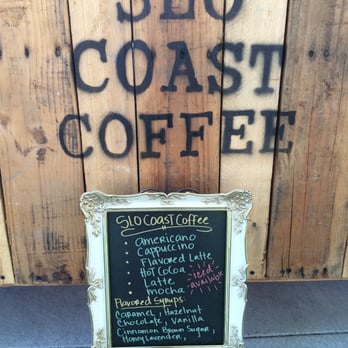 SLO
COAST
COFFEE
SLO COAST COFFEE
• americano
• Cappuccino
• Flavored Latte
• HOT COCOA
• Latte
• mocha
iced
available
Flavored Syrups:
Caramel, Hazelnut
Chocolate, Vanilla
Cinnamon Brown Sugar,
Honey Lavender,